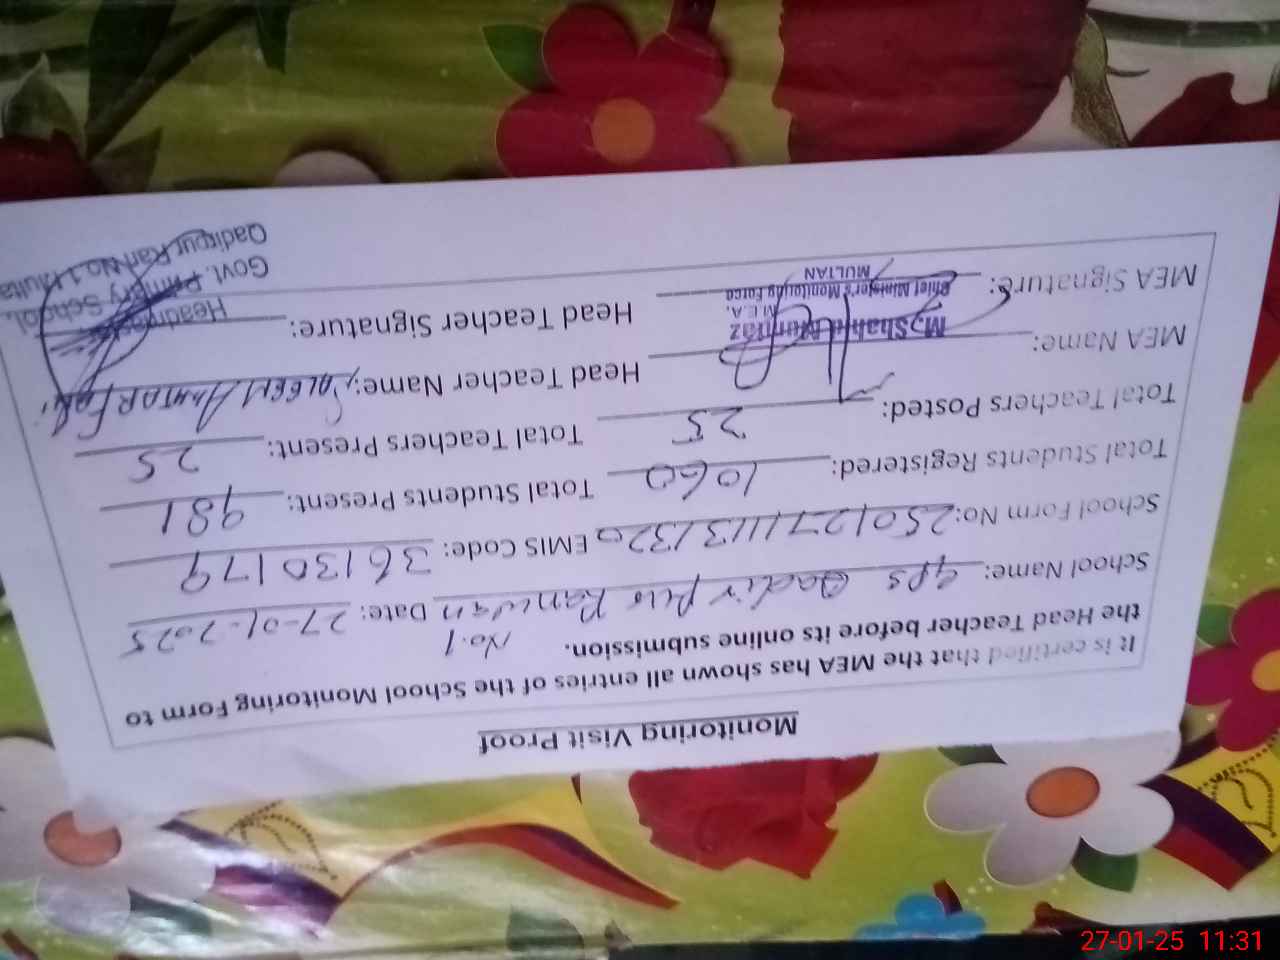 Monitoring Visit Proof
It is certified that the MEA has shown all entries of the School Monitoring Form to
the Head Teacher before its online submission.
No.1
School Name: GPS Qadir Pur Ranwan Date: 27-01-2025
School Form No: 25012711131320 EMIS Code: 36130179
Total Students Registered: 1060 Total Students Present: 981
Total Teachers Posted: 25 Total Teachers Present: 25
MEA Name: M. Shahid Mumtaz Head Teacher Name: SALEEM AKHTAR
M.E.A.
Chief Minister's Monitoring Force
MULTAN
MEA Signature: Head Teacher Signature:
Govt. Primary School,
Qadirpur Ran No.1 Multa
27-01-25 11:31